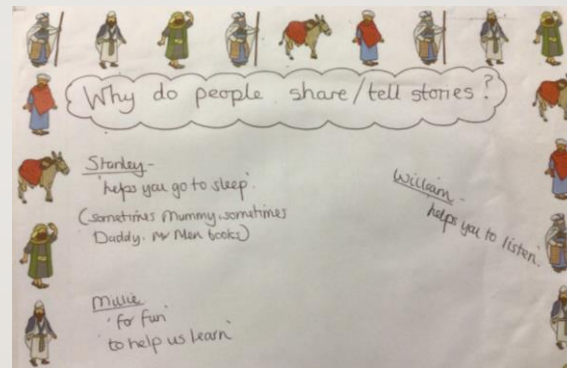 Why do people share/tell stories?
Stanley -
'helps you go to sleep'.
(sometimes Mummy, sometimes
Daddy. Mr Men books)
William -
helps you to listen'.
Millie
'for fun'
'to help us learn'